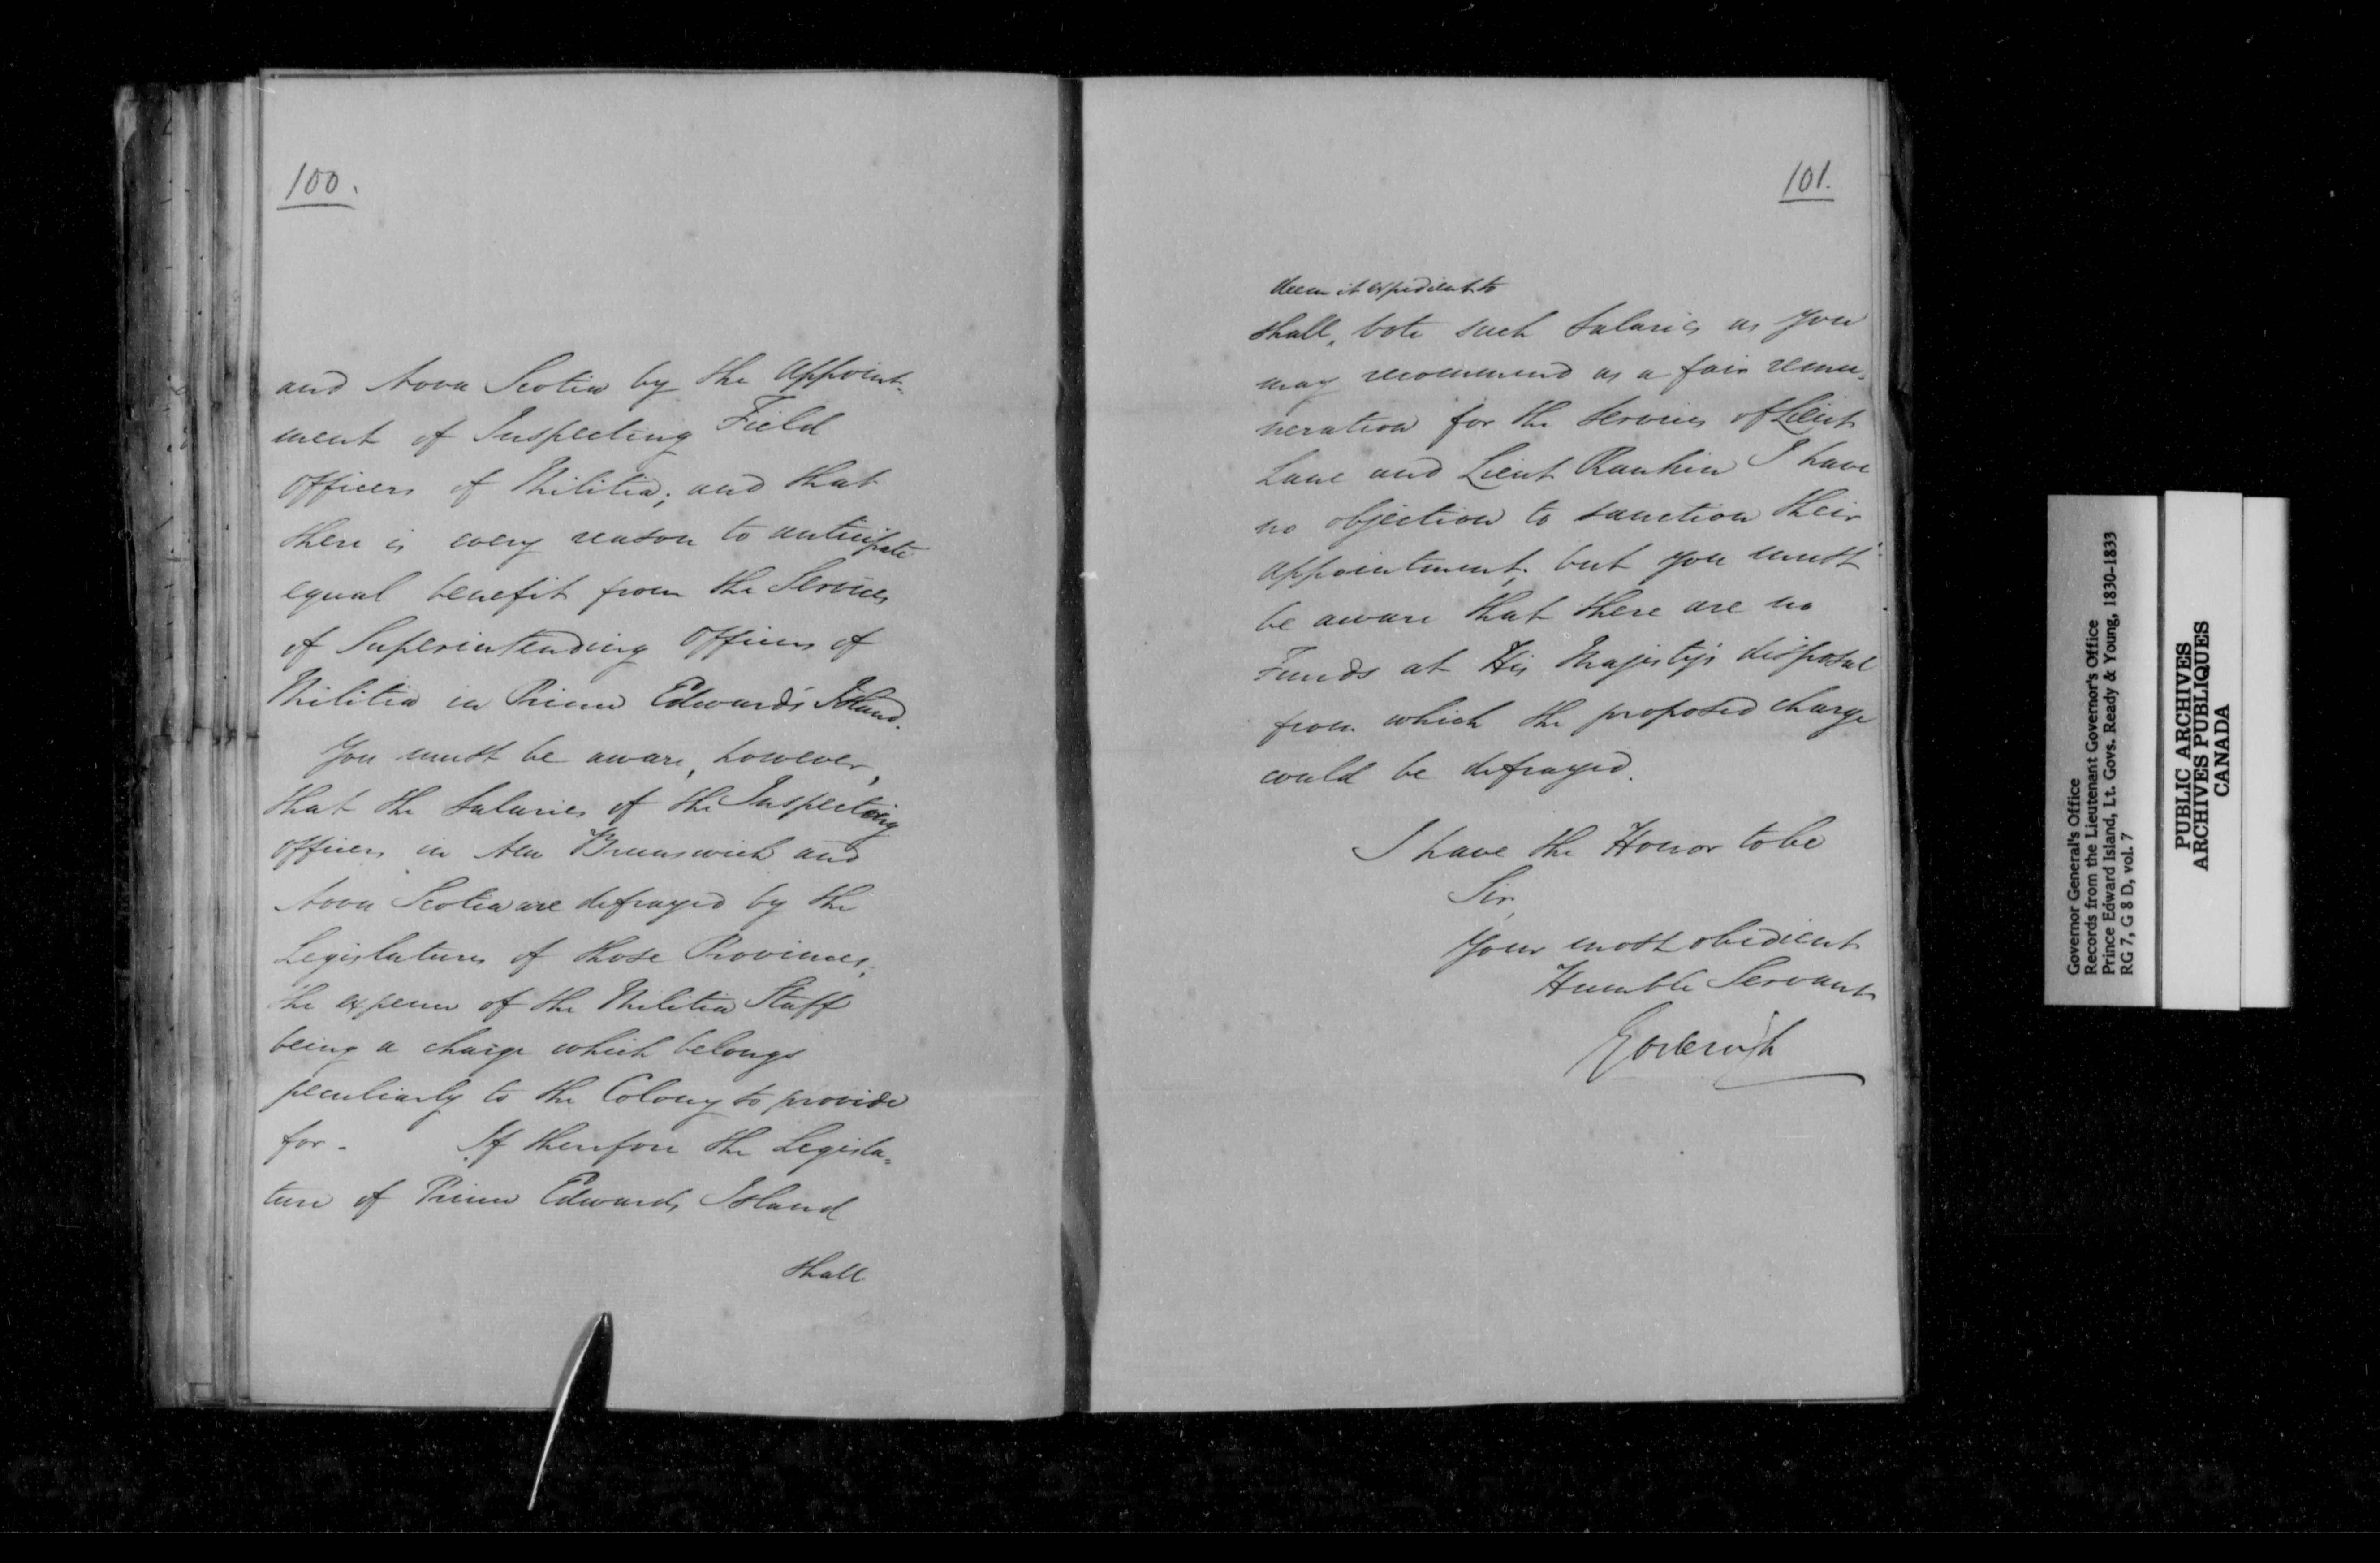 100.
and Nova Scotia by the appoint-
ment of Inspecting Field
officers of Militia; and that
there is every reason to anticipate
equal benefit from the Services
of Superintending Officers of
Militia in Prince Edward's Island.
You must be aware, however,
that the Salaries of the Inspecting
officers in New Brunswick and
Nova Scotia are defrayed by the
Legislatures of those Provinces,
the expense of the Militia Staff
being a charge which belongs
peculiarly to the Colony to provide
for - If therefore the Legisla-
ture of Prince Edwards Island
shall
101.
deem it expedient to
shall, vote such Salaries as you
may recommend as a fair remu-
neration for the services of Lieut
Lane and Lieut Rankin I have
no objection to sanction their
appointment, but you must
be aware that there are no
Funds at His Majesty's disposal
from which the proposed charge
could be defrayed.
I have the Honor to be
Sir,
Your most obedient
Humble Servant
Goderich
Governor General's Office
Records from the Lieutenant Governor's Office
Prince Edward Island, Lt. Govs. Ready & Young, 1830-1833
RG 7, G 8 D, vol. 7
PUBLIC ARCHIVES
ARCHIVES PUBLIQUES
CANADA